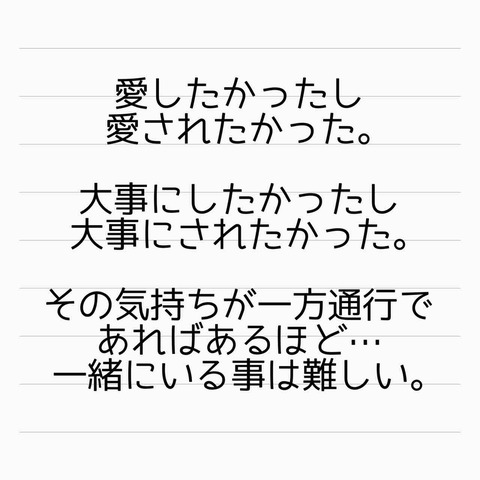 愛したかったし
愛されたかった。
大事にしたかったし
大事にされたかった。
その気持ちが一方通行で
あればあるほど…
一緒にいる事は難しい。